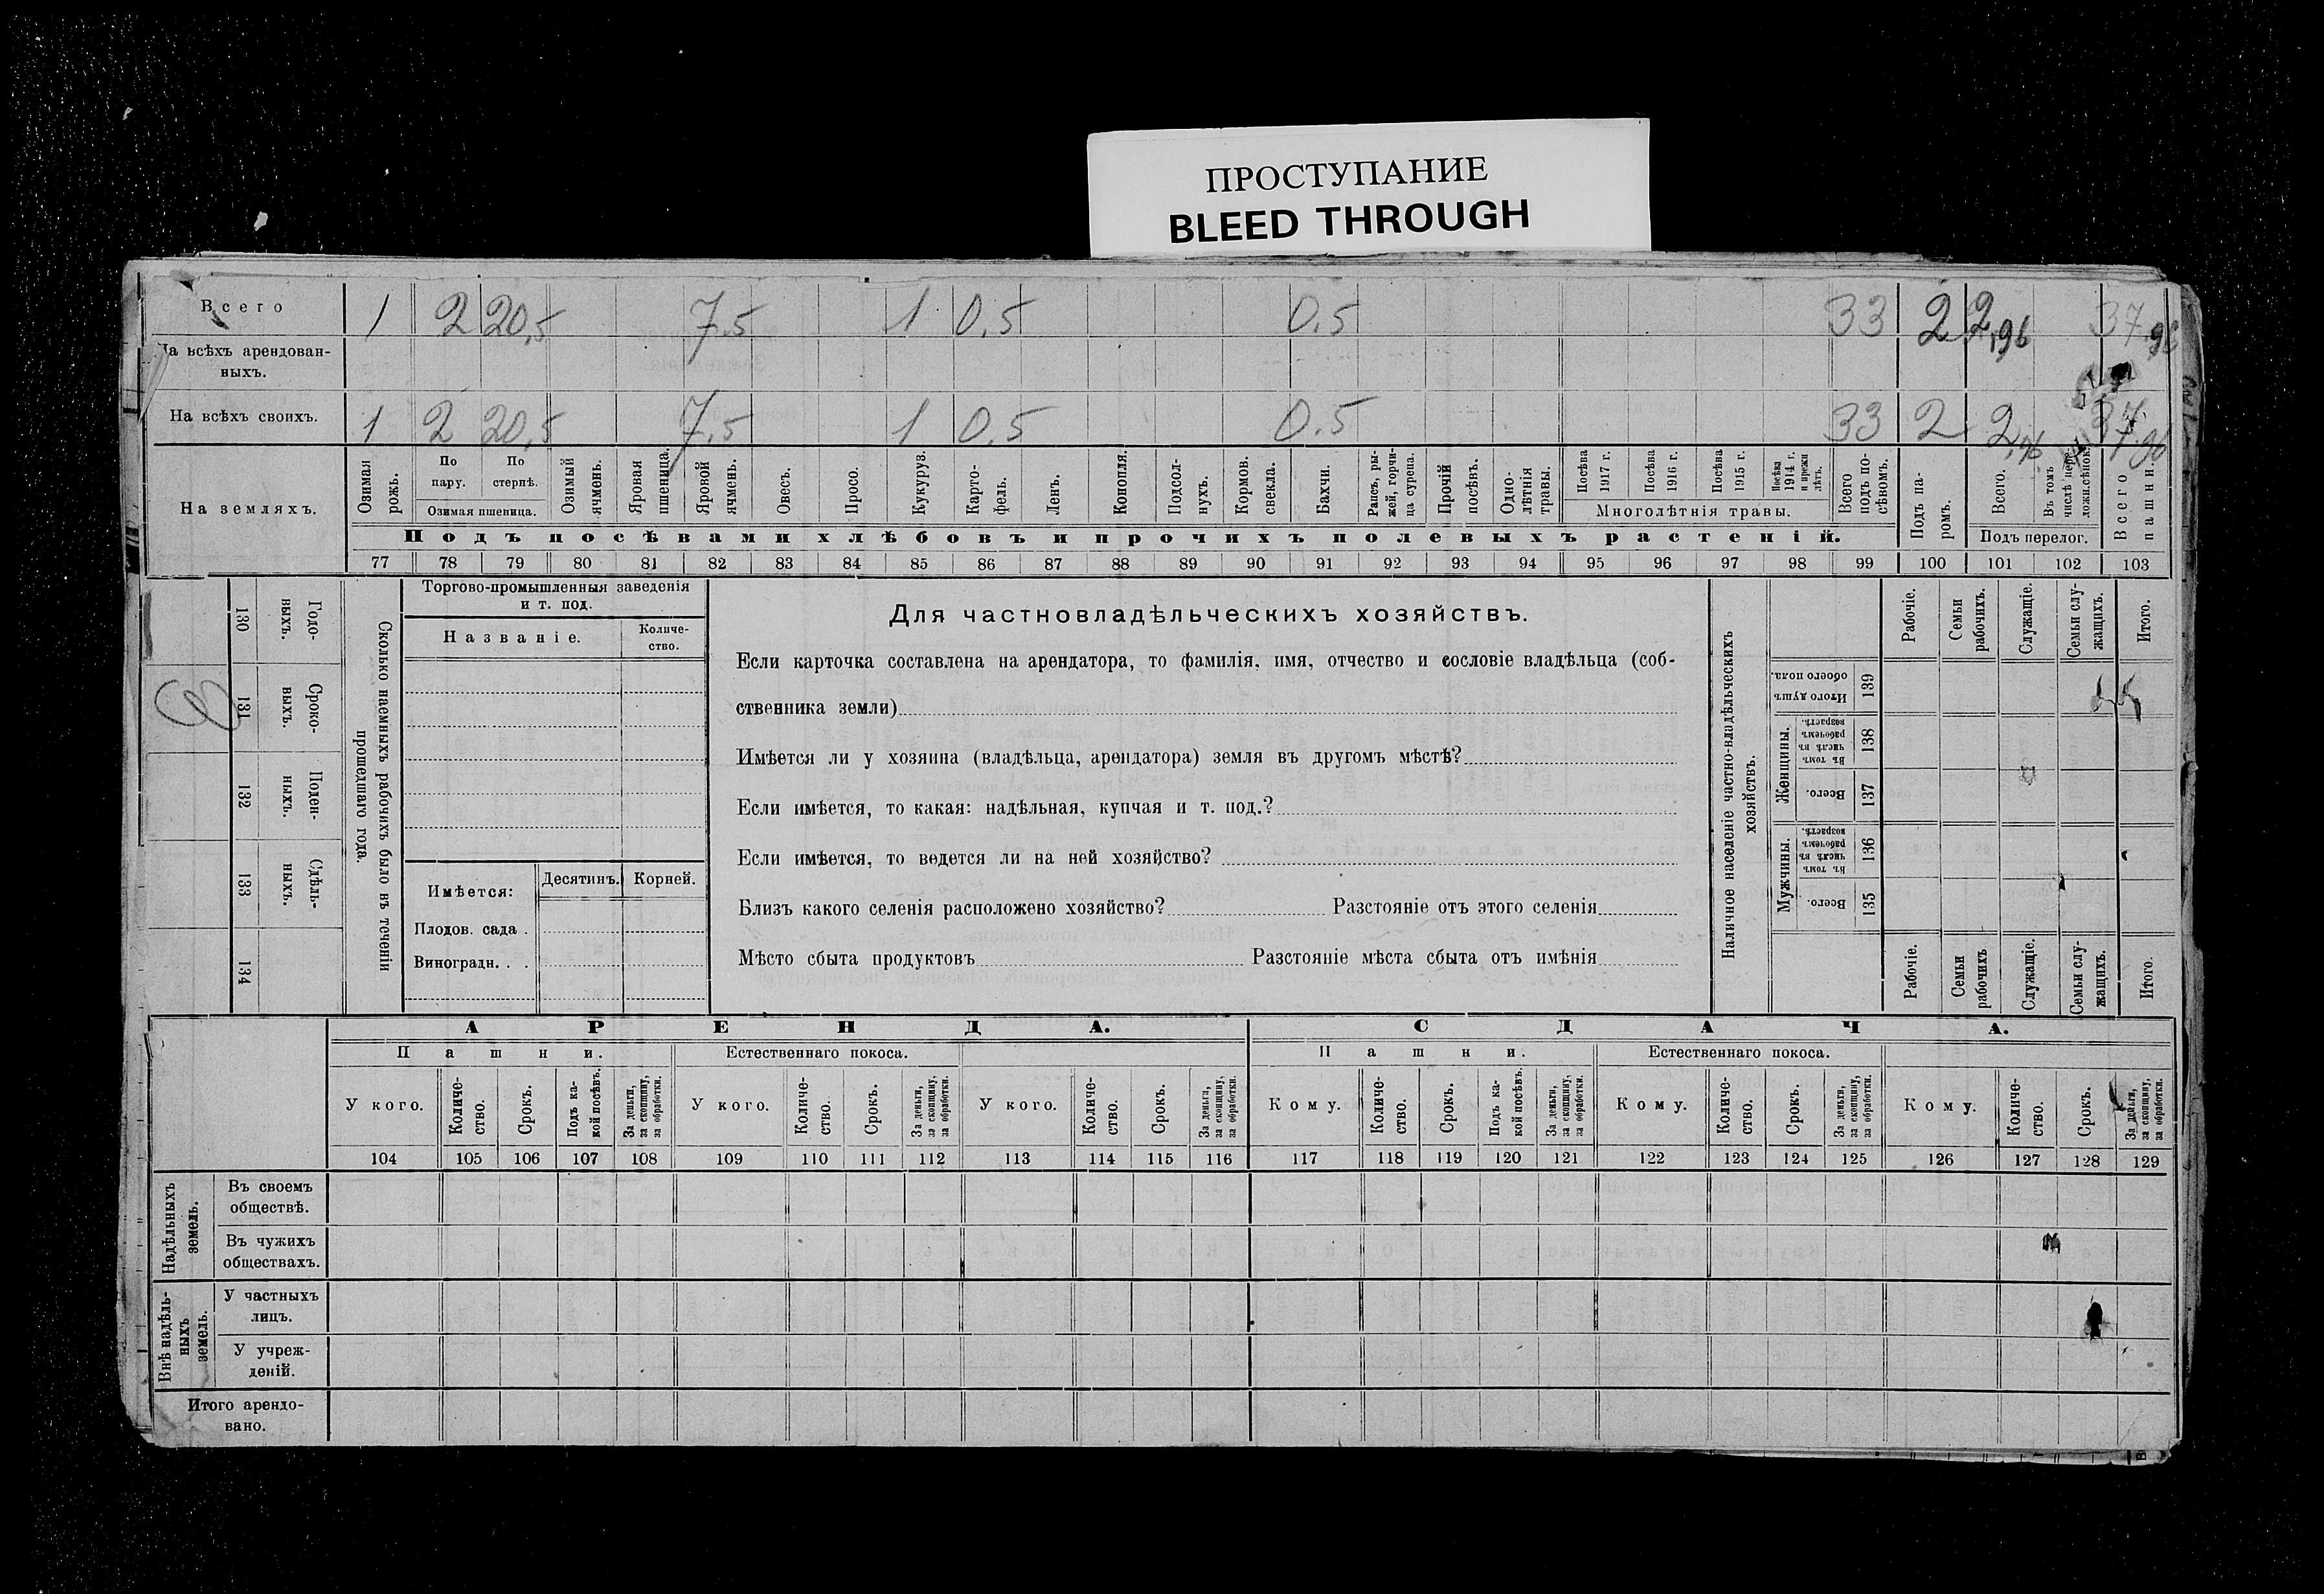 ПРОСТУПАНИЕ
BLEED THROUGH
Всего 1 2 20,5 7.5 1 0,5 0.5 33 2 2,96 37.96
На всѣхъ арендован-
ныхъ.
На всѣхъ своихъ. 1 2 20,5 7,5 1 0,5 0.5 33 2 2,96 37.96
На земляхъ.
Озимая рожь.
По пару.
По стернѣ.
Озимая пшеница.
Озимый ячмень.
Яровая пшеница.
Яровой ячмень.
Овесъ.
Просо.
Кукуруз.
Карто-
фель.
Ленъ.
Конопля.
Подсол-
нухъ.
Кормов. свекла.
Бахчи.
Рапсъ, ры-
жей, горчи-
ца сурепа.
Прочій посѣвъ.
Одно-
лѣтнія травы.
Посѣва 1917 г.
Посѣва 1916 г.
Посѣва 1915 г.
Посѣва 1914 г. и прежн лѣтъ.
Многолѣтнія травы.
Всего подъ по-
сѣвомъ.
Подъ па-
ромъ.
Всего.
Въ томъ числѣ пере-
ложн.сѣнок.
Подъ перелог.
Всего пашни.
Подъ посѣвами хлѣбовъ и прочихъ полевыхъ растеній.
77 78 79 80 81 82 83 84 85 86 87 88 89 90 91 92 93 94 95 96 97 98 99 100 101 102 103
Годо-
выхъ.
130
Сроко-
выхъ.
131
Поден-
ныхъ.
132
Сдѣль-
ныхъ.
133
134
Сколько наемныхъ рабочихъ было въ теченіи
прошедшаго года.
Торгово-промышленныя заведенія
и т. под.
Названіе.
Количе-
ство.
Имѣется:
Десятинъ.
Корней.
Плодов. сада .
Виноградн. . .
Для частновладѣльческихъ хозяйствъ.
Если карточка составлена на арендатора, то фамилія, имя, отчество и сословіе владѣльца (соб-
ственника земли)
Имѣется ли у хозяина (владѣльца, арендатора) земля въ другомъ мѣстѣ?
Если имѣется, то какая: надѣльная, купчая и т. под.?
Если имѣется, то ведется ли на ней хозяйство?
Близъ какого селенія расположено хозяйство? Разстояніе отъ этого селенія
Мѣсто сбыта продуктовъ Разстояніе мѣста сбыта отъ имѣнія
Наличное населеніе частно-владѣльческихъ
хозяйствъ.
Рабочіе.
Семьи рабочихъ.
Служащіе.
Семьи слу-
жащихъ.
Итого.
Итого душъ обоего пола.
139
Женщины.
Въ томъ числѣ въ рабочемъ возрастѣ.
138
Всего.
137
Мужчины.
Въ томъ числѣ въ рабочемъ возрастѣ.
136
Всего.
135
Рабочіе.
Семьи рабочихъ
Служащіе.
Семьи слу-
жащихъ.
Итого.
АРЕНДА. СДАЧА.
Пашни. Естественнаго покоса. Пашни. Естественнаго покоса.
У кого.
Количе-
ство.
Срокъ.
Подъ ка-
кой посѣвъ.
За деньги, за скопщину, за обработки.
У кого.
Количе-
ство.
Срокъ.
За деньги, за скопщину, за обработки.
У кого.
Количе-
ство.
Срокъ.
За деньги, за скопщину, за обработки.
Кому.
Количе-
ство.
Срокъ.
Подъ ка-
кой посѣвъ.
За деньги, за скопщину, за обработки.
Кому.
Количе-
ство.
Срокъ.
За деньги, за скопщину, за обработки.
Кому.
Количе-
ство.
Срокъ.
За деньги, за скопщину, за обработки.
104 105 106 107 108 109 110 111 112 113 114 115 116 117 118 119 120 121 122 123 124 125 126 127 128 129
Надѣльныхъ земель.
Въ своемъ
обществѣ.
Въ чужихъ
обществахъ.
Внѣ надѣль-
ныхъ земель.
У частныхъ
лицъ.
У учреж-
деній.
Итого арендо-
вано.